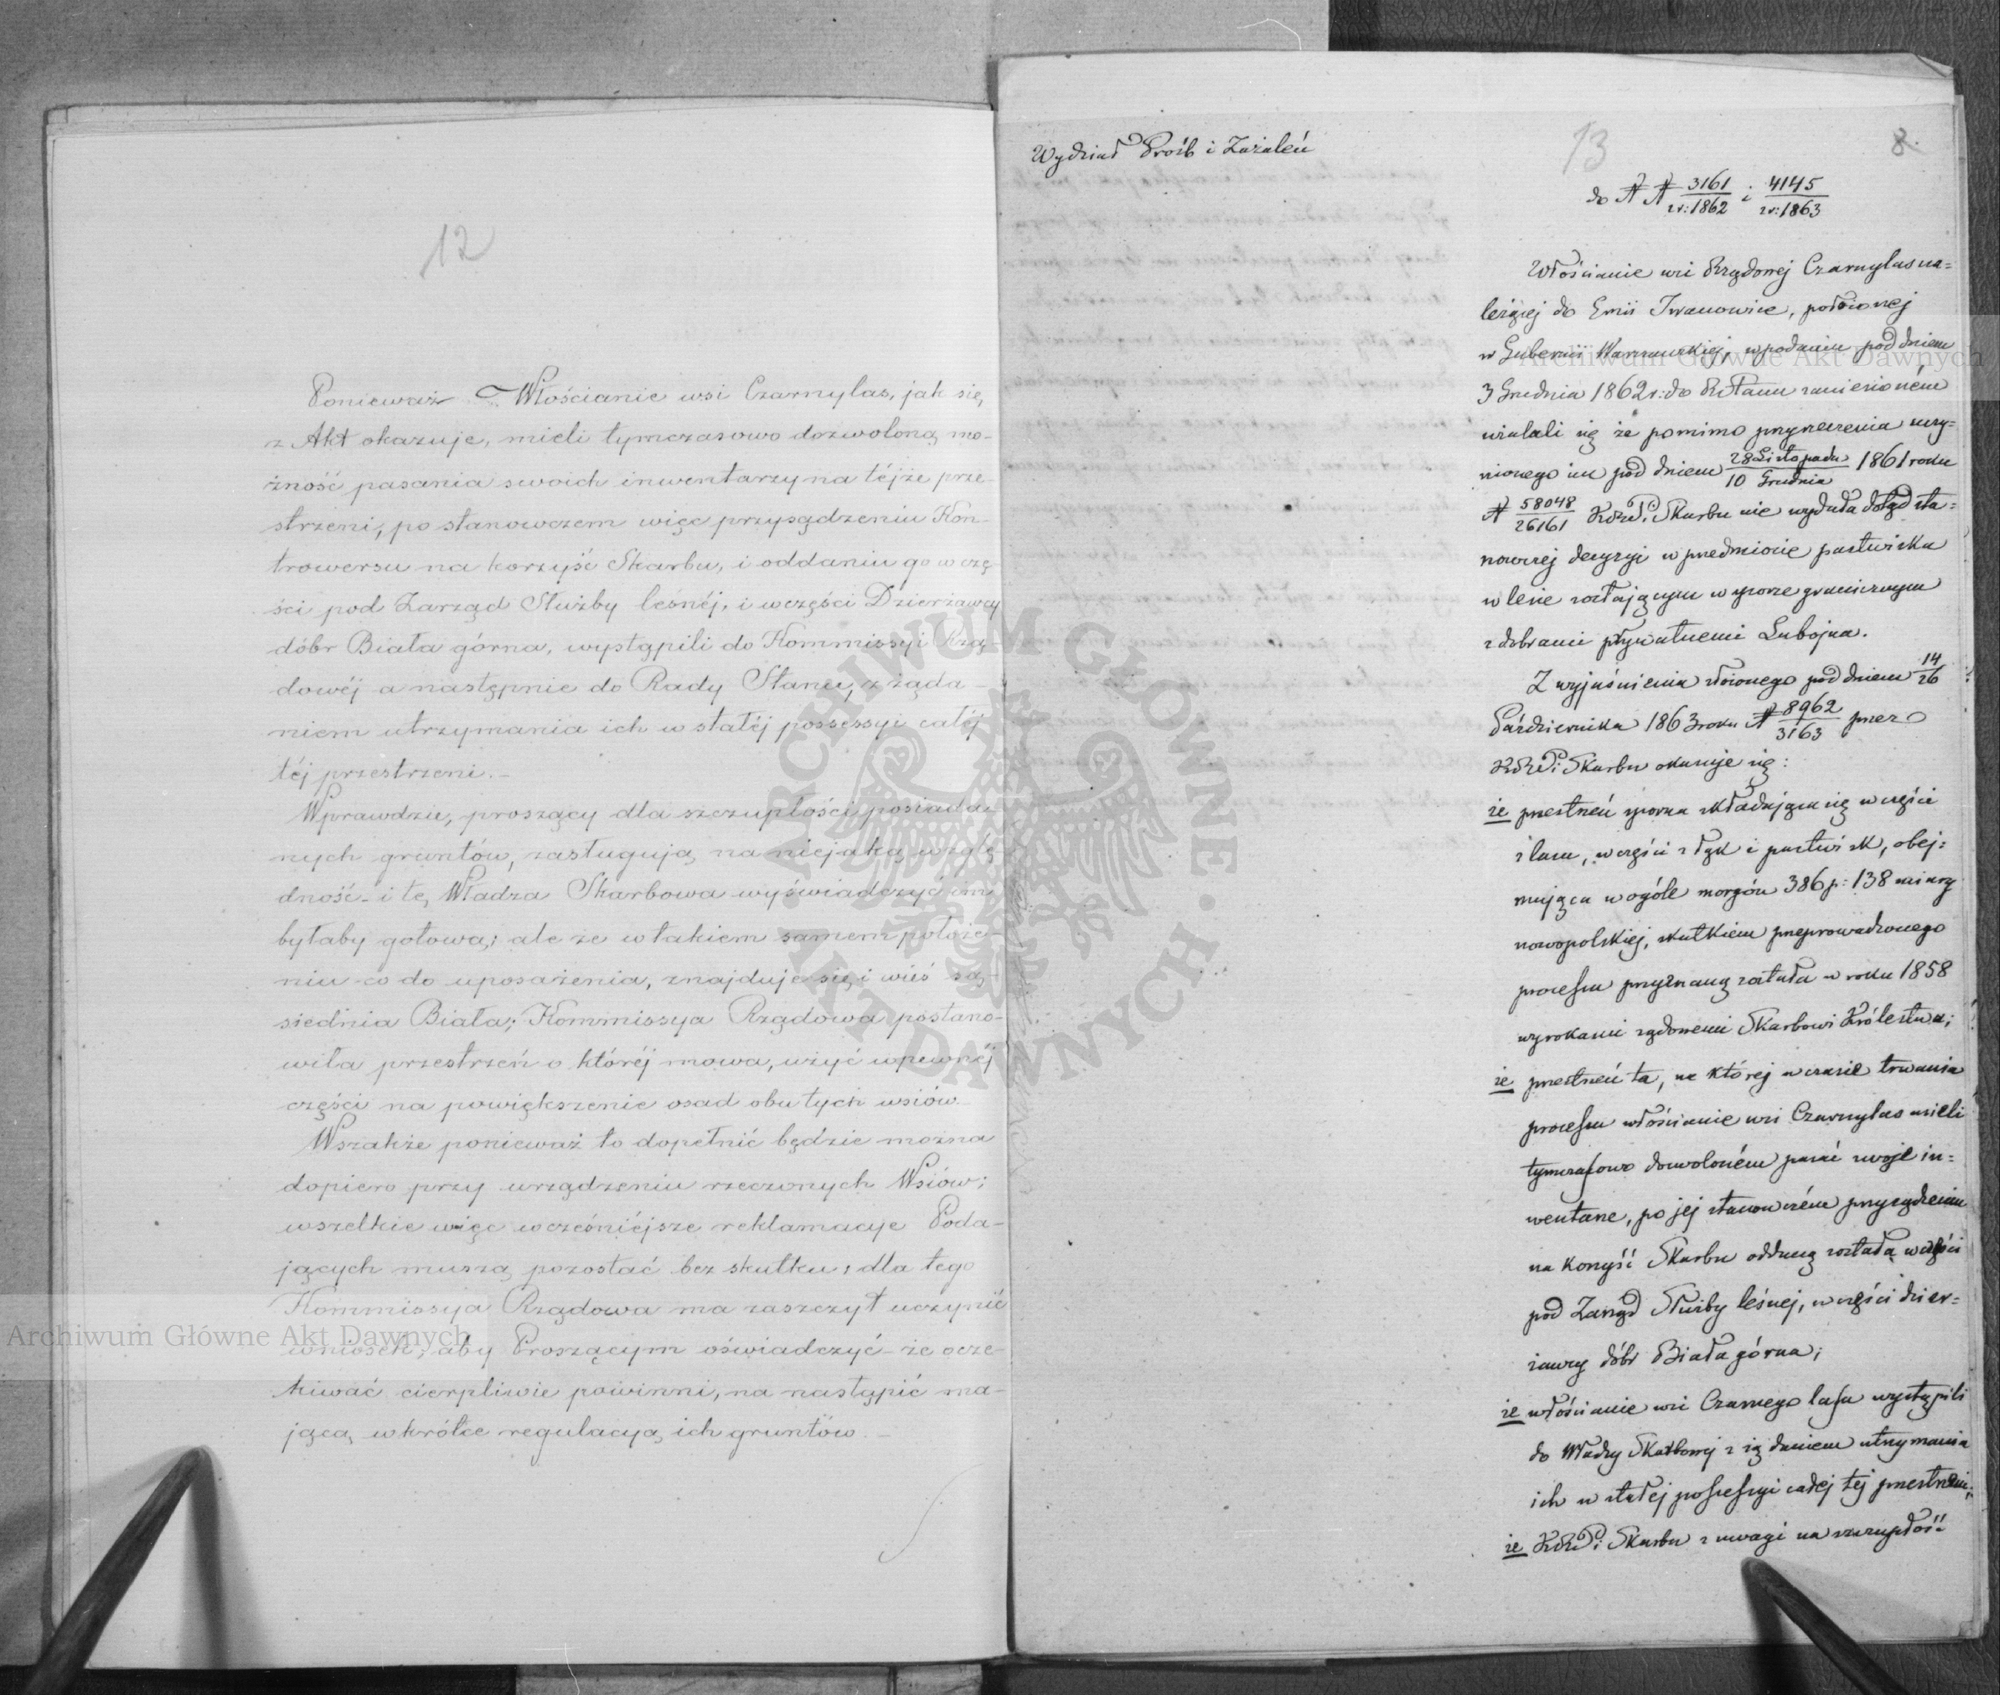 12
Ponieważ Włościanie wsi Czarnylas, jak się,
z Akt okazuje, mieli tymczasowo dozwoloną mo-
żność pasania swoich inwentarzy na téjże prze-
strzeni, po stanowczem więc przysądzeniu Kon-
trowersu na korzyść Skarbu, i oddaniu go w czę-
ści pod Zarząd Służby leśnéj, i w części Dzierżawcy
dóbr Biała górna, wystąpili do Kommissyi Rzą-
dowéj a następnie do Rady Stanu, z żąda-
niem utrzymania ich w stałéj possessyi całéj
téj przestrzeni.-
Wprawdzie, proszący dla szczupłości posiada-
nych gruntów, zasługują na niejaką wzglę-
dność i tę Władza Skarbowa wyświadczyć im
byłaby gotowa; ale że w takiem samem położe-
niu co do uposażenia, znajduje się i wieś są-
siednia Biała; Kommissya Rządowa postano-
wiła przestrzeń o któréj mowa, użyć w pewnéj
części na powiększenie osad obu tych wsiów.-
Wszakże ponieważ to dopełnić będzie można
dopiero przy urządzeniu rzeczonych Wsiów;
wszelkie więc wcześniéjsze reklamacye Poda-
jących muszą pozostać bez skutku; dla tego
Kommissya Rządowa ma zaszczyt uczynić
wniosek, aby Proszącym oświadczyć - że ocze-
kiwać cierpliwie powinni, na nastąpić ma-
jącą wkrótce regulacyą ich gruntów.-
Wydział Próśb i Zażaleń
13
8.
do NN 3161/r:1862 i 4145/r:1863
Włościanie wsi Rządowej Czarnylas na=
leżącej do Gminy Iwanowice, położonej
w Gubernii Warszawskiej, w podaniu pod dniem
3 Grudnia 1862 r: do RStanu zaniesioném
użalali się że pomimo przyrzeczenia uczy=
nionego im pod dniem 28 Listopada/10 Grudnia 1861 roku
N 58048/26161 KRP i Skarbu nie wydała dotąd sta=
nowczej decyzyi w przedmiocie pastwiska
w lesie zostającym w sporze granicznym
z dobrami prywatnemi Lubojna.
Z wyjaśnienia złożonego pod dniem 14/26
Października 1863 roku N 8962/3163 przez
KRP i Skarbu okazuje się:
że przestrzeń sporna składająca się w części
z lasu, w części z łąk i pastwisk, obej=
mująca w ogóle morgów 386 p: 138 miary
nowopolskiej, skutkiem przeprowadzonego
processu przyznaną została w roku 1858
wyrokami sądowemi Skarbowi Królestwa;
że przestrzeń ta, na której w czasie trwania
processu włościanie wsi Czarnylas mieli
tymczasowo dozwoloném pasać swoje in=
wentarze, po jej stanowczém przysądzeniu
na korzyść Skarbu oddaną została w części
pod Zarząd Służby leśnej, w części dzier=
żawcy dóbr Biała górna;
że włościanie wsi Czarnego lasu wystąpili
do Władzy Skarbowej z żądaniem utrzymania
ich w stałej possessyi całej tej przestrzeni;
że KRP i Skarbu z uwagi na szczupłość
Archiwum Główne Akt Dawnych
Archiwum Główne Akt Dawnych
ARCHIWUM GŁÓWNE AKT DAWNYCH